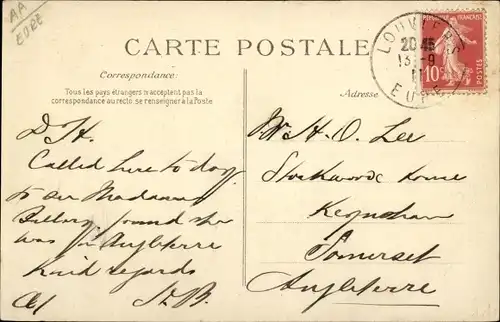 AA
EURE
CARTE POSTALE
LOUVIERS
20 45
13 - 9
11
EURE
RÉPUBLIQUE FRANÇAISE
10c
POSTES
Correspondance:
Tous les pays étrangers n'acceptent pas la
correspondance au recto, se renseigner à la Poste
Adresse
D H.
Called here to day
to see Madame
found she
was in Angleterre
Kind regards
H. B.
Mr H. O. Lee
Stockwood House
Keynsham
Somerset
Angleterre